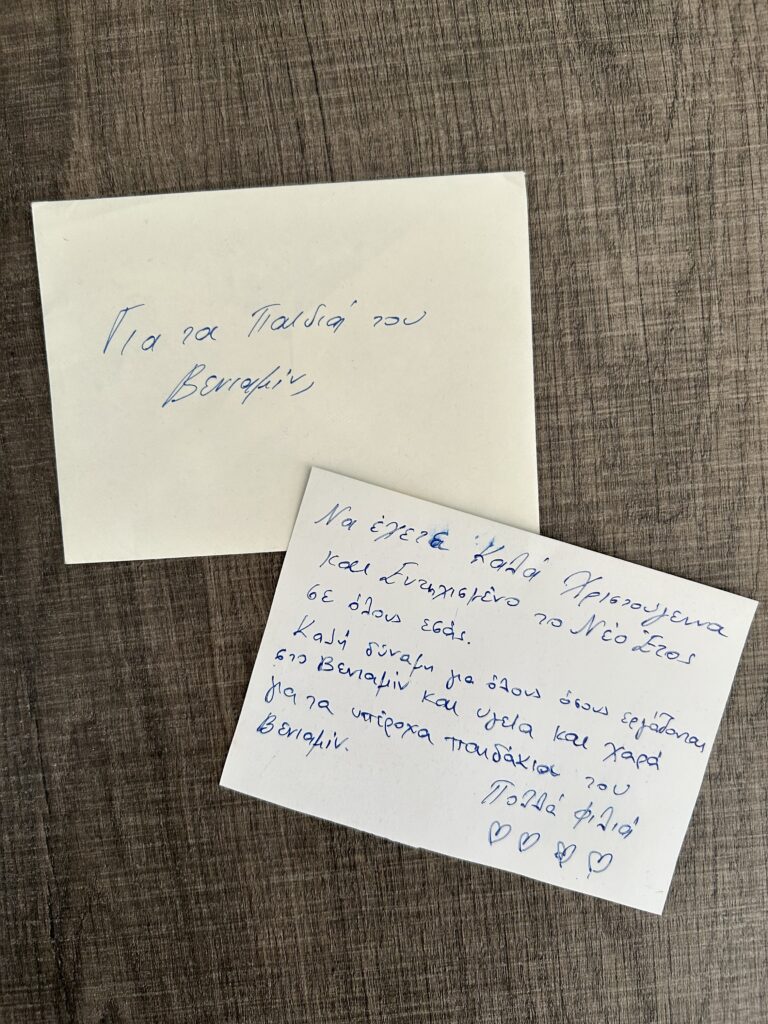 Για τα Παιδιά του
Βενιαμίν,
Να έχετε Καλά Χριστούγεννα
και Ευτυχισμένο το Νέο Έτος
σε όλους εσάς.
Καλή δύναμη για όλους όσους εργάζονται
στο Βενιαμίν και υγεία και χαρά
για τα υπέροχα παιδάκια του
Βενιαμίν.
Πολλά φιλιά